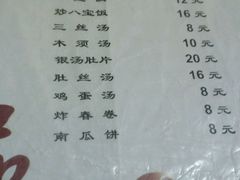 12 元
炒八宝饭 16 元
三丝汤 8 元
木须汤 10 元
银汤肚片 20 元
肚丝汤 16 元
鸡蛋汤 8 元
炸春卷 8 元
南瓜饼 8 元